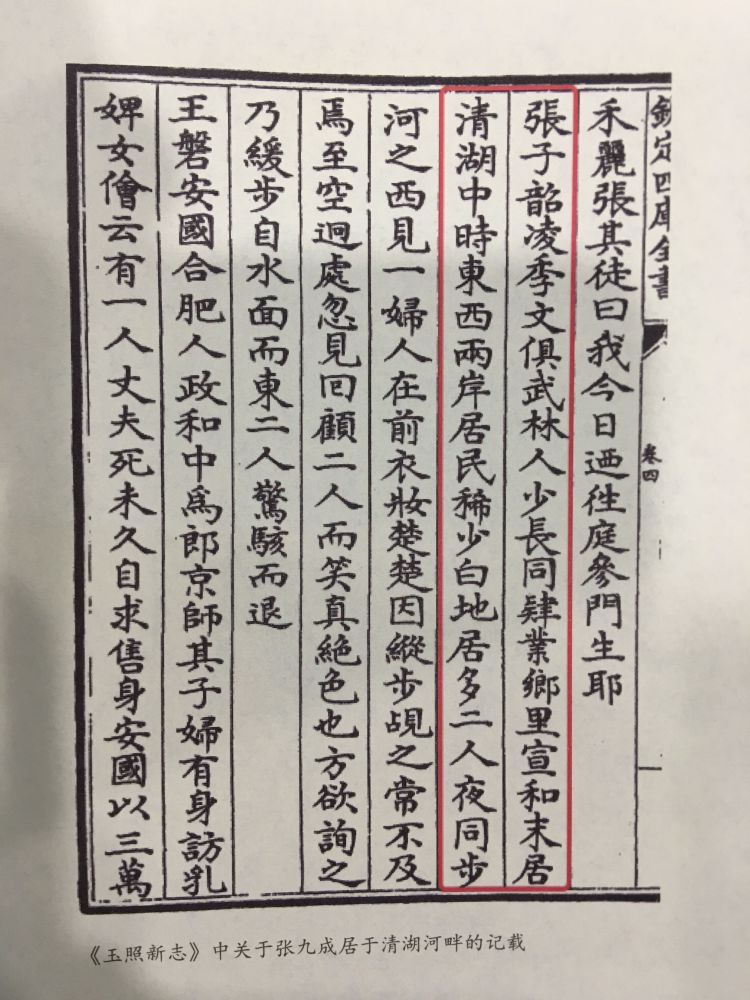 欽定四庫全書
卷四
禾麗張其徒曰我今日迺徃庭參門生耶
張子韶凌季文俱武林人少長同肄業鄉里宣和末居
清湖中時東西兩岸居民稀少白地居多二人夜同步
河之西見一婦人在前衣妝楚楚因縱步覘之常不及
焉至空迥處忽見回顧二人而笑真絕色也方欲詢之
乃緩步自水面而東二人驚駭而退
王磐安國合肥人政和中為郎京師其子婦有身訪乳
婢女儈云有一人丈夫死未久自求售身安國以三萬
《玉照新志》中关于张九成居于清湖河畔的记载